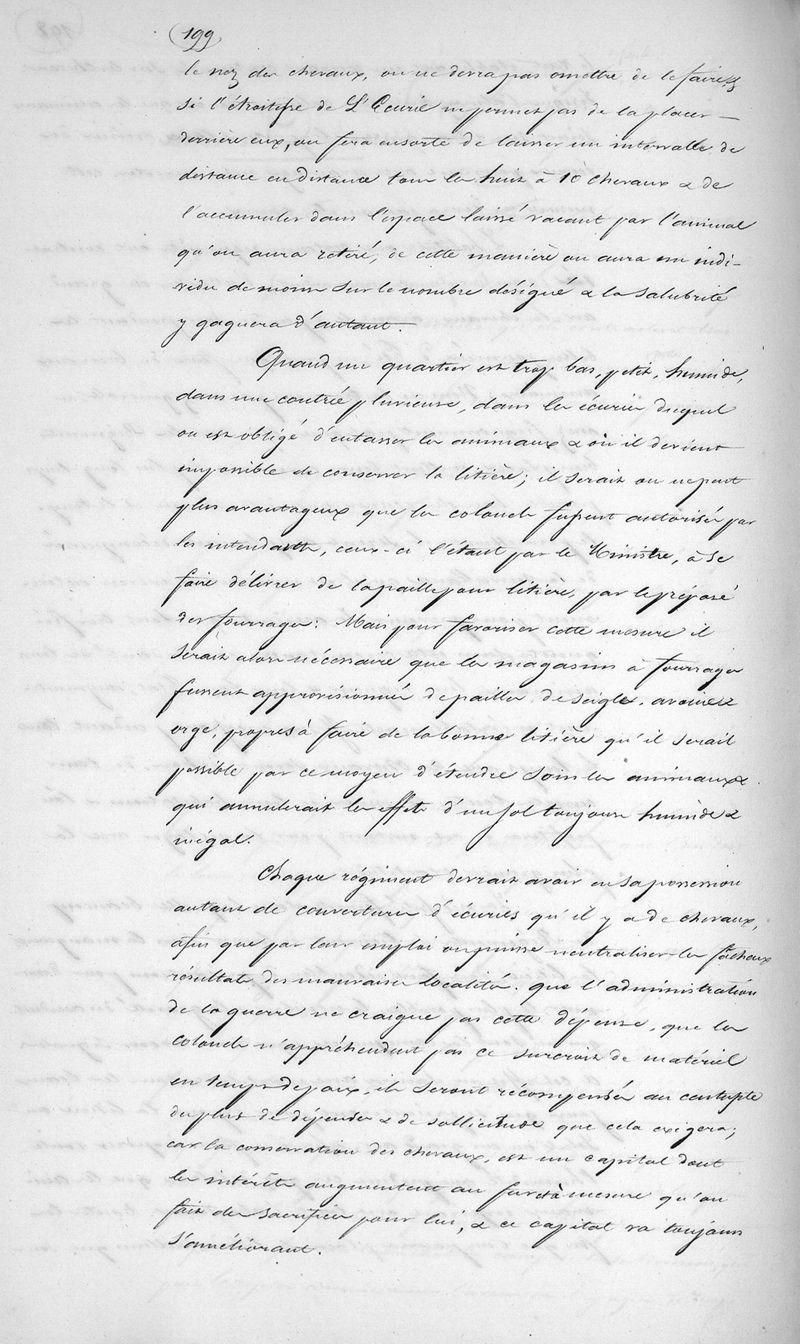 199
le nez des chevaux, on ne devra pas omettre de le faire &
si l'étroitesse de L'Ecurie ne permet pas de la placer —
derrière eux, on fera ensorte de laisser un intervalle de
distance en distance tous les huit à 10 chevaux & de
l'accumuler dans l'espace laissé vacant par l'animal
qu'on aura retiré, de cette manière on aura un indi-
vidu de moins sur le nombre désigné & la salubrité
y gagnera d'autant.
Quand un quartier est trop bas, petit, humide,
dans une contrée pluvieuse, dans les écuries duquel
on est obligé d'entasser les animaux & où il devient
impossible de conserver la litière; il serait on ne peut
plus avantageux que les colonels fussent autorisés par
les intendants, ceux-ci l'étant par le Ministre, à se
faire délivrer de la paille pour litière, par le préposé
des fourrages: Mais pour favoriser cette mesure il
serait alors nécessaire que les magasins à fourrages
fussent approvisionnés de pailles, de seigle, avoine &
orge, propres à faire de la bonne litière qu'il serait
possible par ce moyen d'étendre sous les animaux &
qui annulerait les effets d'un sol toujours humide &
inégal.
Chaque régiment devrait avoir en sa possession
autant de couvertures d'écuries qu'il y a de chevaux,
afin que par leur emploi on puisse neutraliser les fâcheux
résultats des mauvaises localités. que l'administration
de la guerre ne craigne pas cette dépense, que les
colonels n'appréhendent pas ce surcroit de matériel
en temps de paix, ils seront récompensés au centuple
du plus de dépenses & de sollicitude que cela exigera;
car la conservation des chevaux, est un capital dont
les intérêts augmentent au fur et à mesure qu'on
fait des sacrifices pour lui, & ce capital va toujours
s'améliorant.